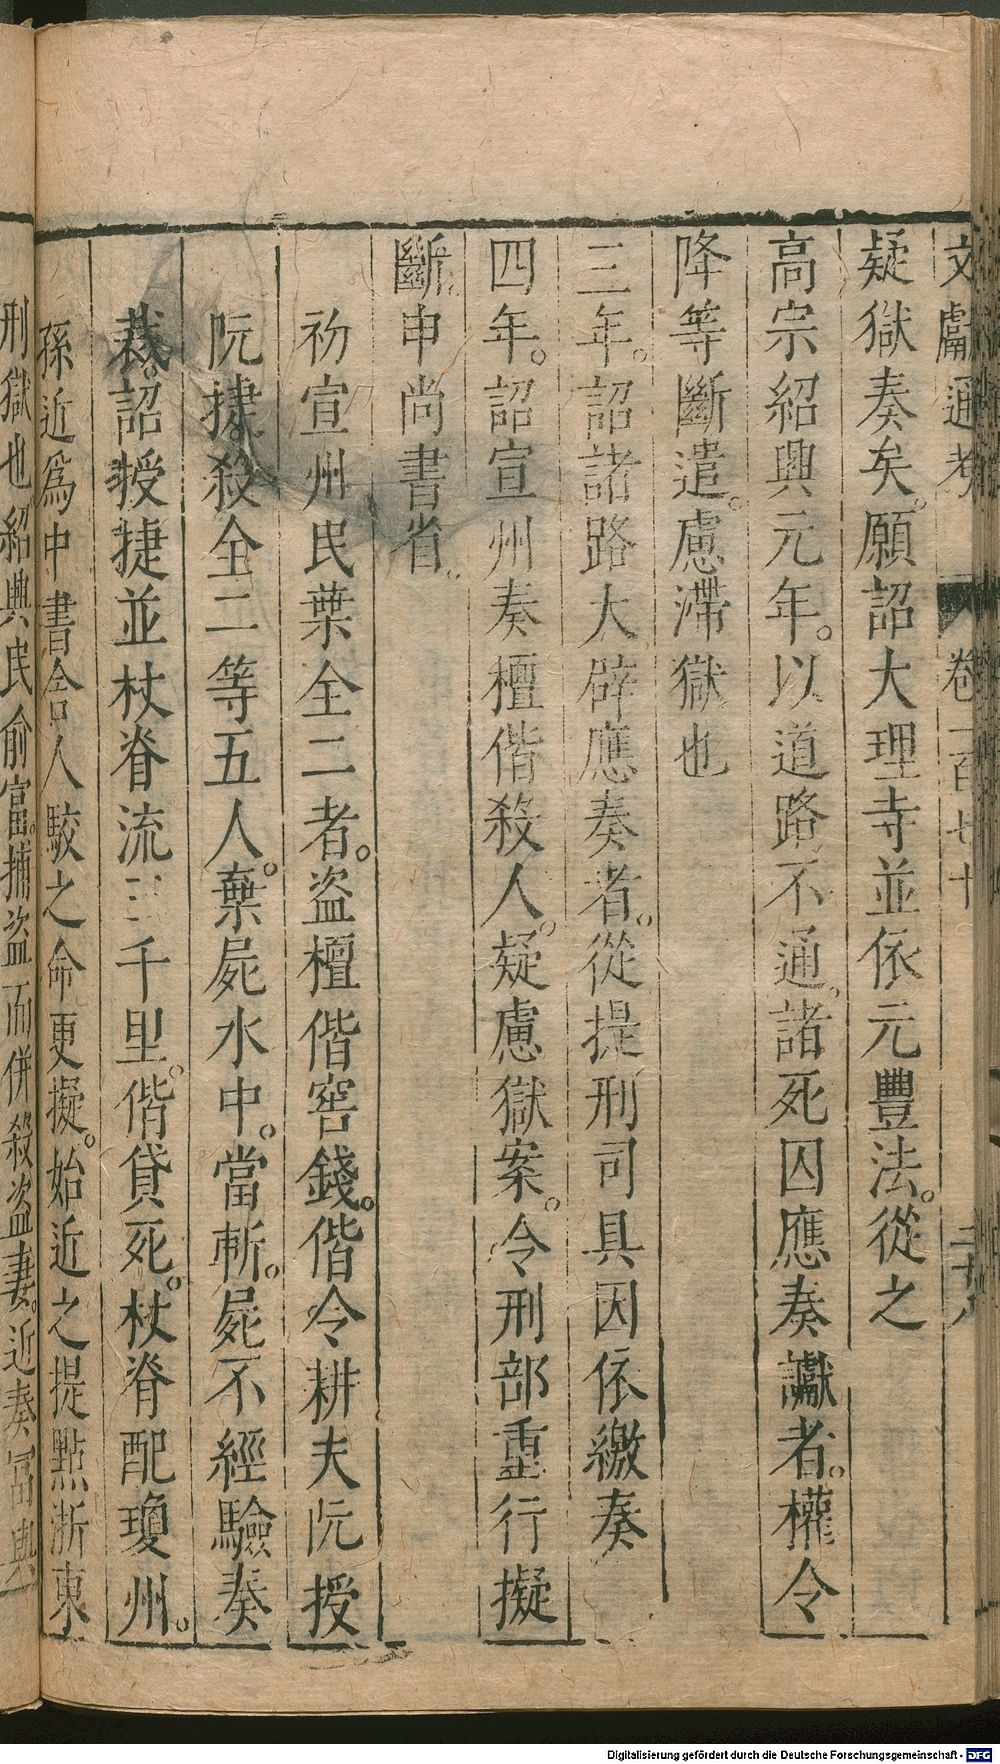 文獻通考 卷一百七十 二十八
疑獄奏矣。願詔大理寺並依元豐法。從之
高宗紹興元年。以道路不通。諸死囚應奏讞者。權令
降等斷遣。慮滯獄也
三年。詔諸路大辟應奏者。從提刑司具因依繳奏
四年。詔宣州奏檀偕殺人。疑慮獄案。令刑部重行擬
斷。申尚書省。
初宣州民葉全二者。盜檀偕窖錢。偕令耕夫阮授
阮捷。殺全二等五人。棄屍水中。當斬。屍不經驗奏
裁。詔授捷並杖脊流三千里。偕貸死。杖脊配瓊州。
孫近爲中書舍人駮之命更擬。始近之提點浙東
刑獄也。紹興民俞富。捕盜而併殺盜妻。近奏富與
Digitalisierung gefördert durch die Deutsche Forschungsgemeinschaft - DFG